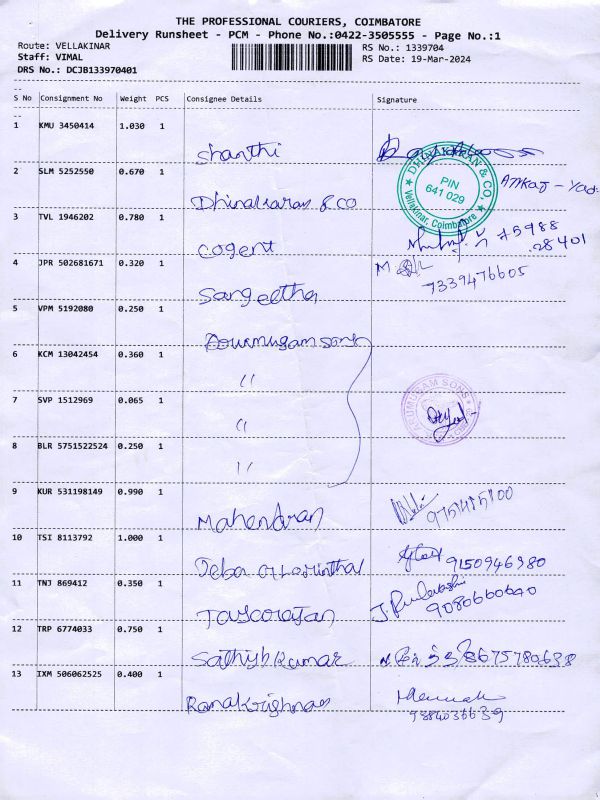 THE PROFESSIONAL COURIERS, COIMBATORE
Delivery Runsheet - PCM - Phone No.:0422-3505555 - Page No.:1
Route: VELLAKINAR RS No.: 1339704
Staff: VIMAL RS Date: 19-Mar-2024
DRS No.: DCJB133970401
S No Consignment No Weight PCS Consignee Details Signature
1 KMU 3450414 1.030 1
Shanthi
2 SLM 5252550 0.670 1
Dhinakaran & co
DHINAKARAN & CO.
PIN
641 029
Vellakinar, Coimbatore
3 TVL 1946202 0.780 1
Cogent
75988
28401
4 JPR 502681671 0.320 1
Sangeetha
7339476605
5 VPM 5192080 0.250 1
6 KCM 13042454 0.360 1
"
7 SVP 1512969 0.065 1
"
ARUMUGAM SONS
8 BLR 5751522524 0.250 1
"
9 KUR 531198149 0.990 1
Mahendran
10 TSI 8113792 1.000 1
9150946980
11 TNJ 869412 0.350 1
9080660640
12 TRP 6774033 0.750 1
8675780638
13 IXM 506062525 0.400 1